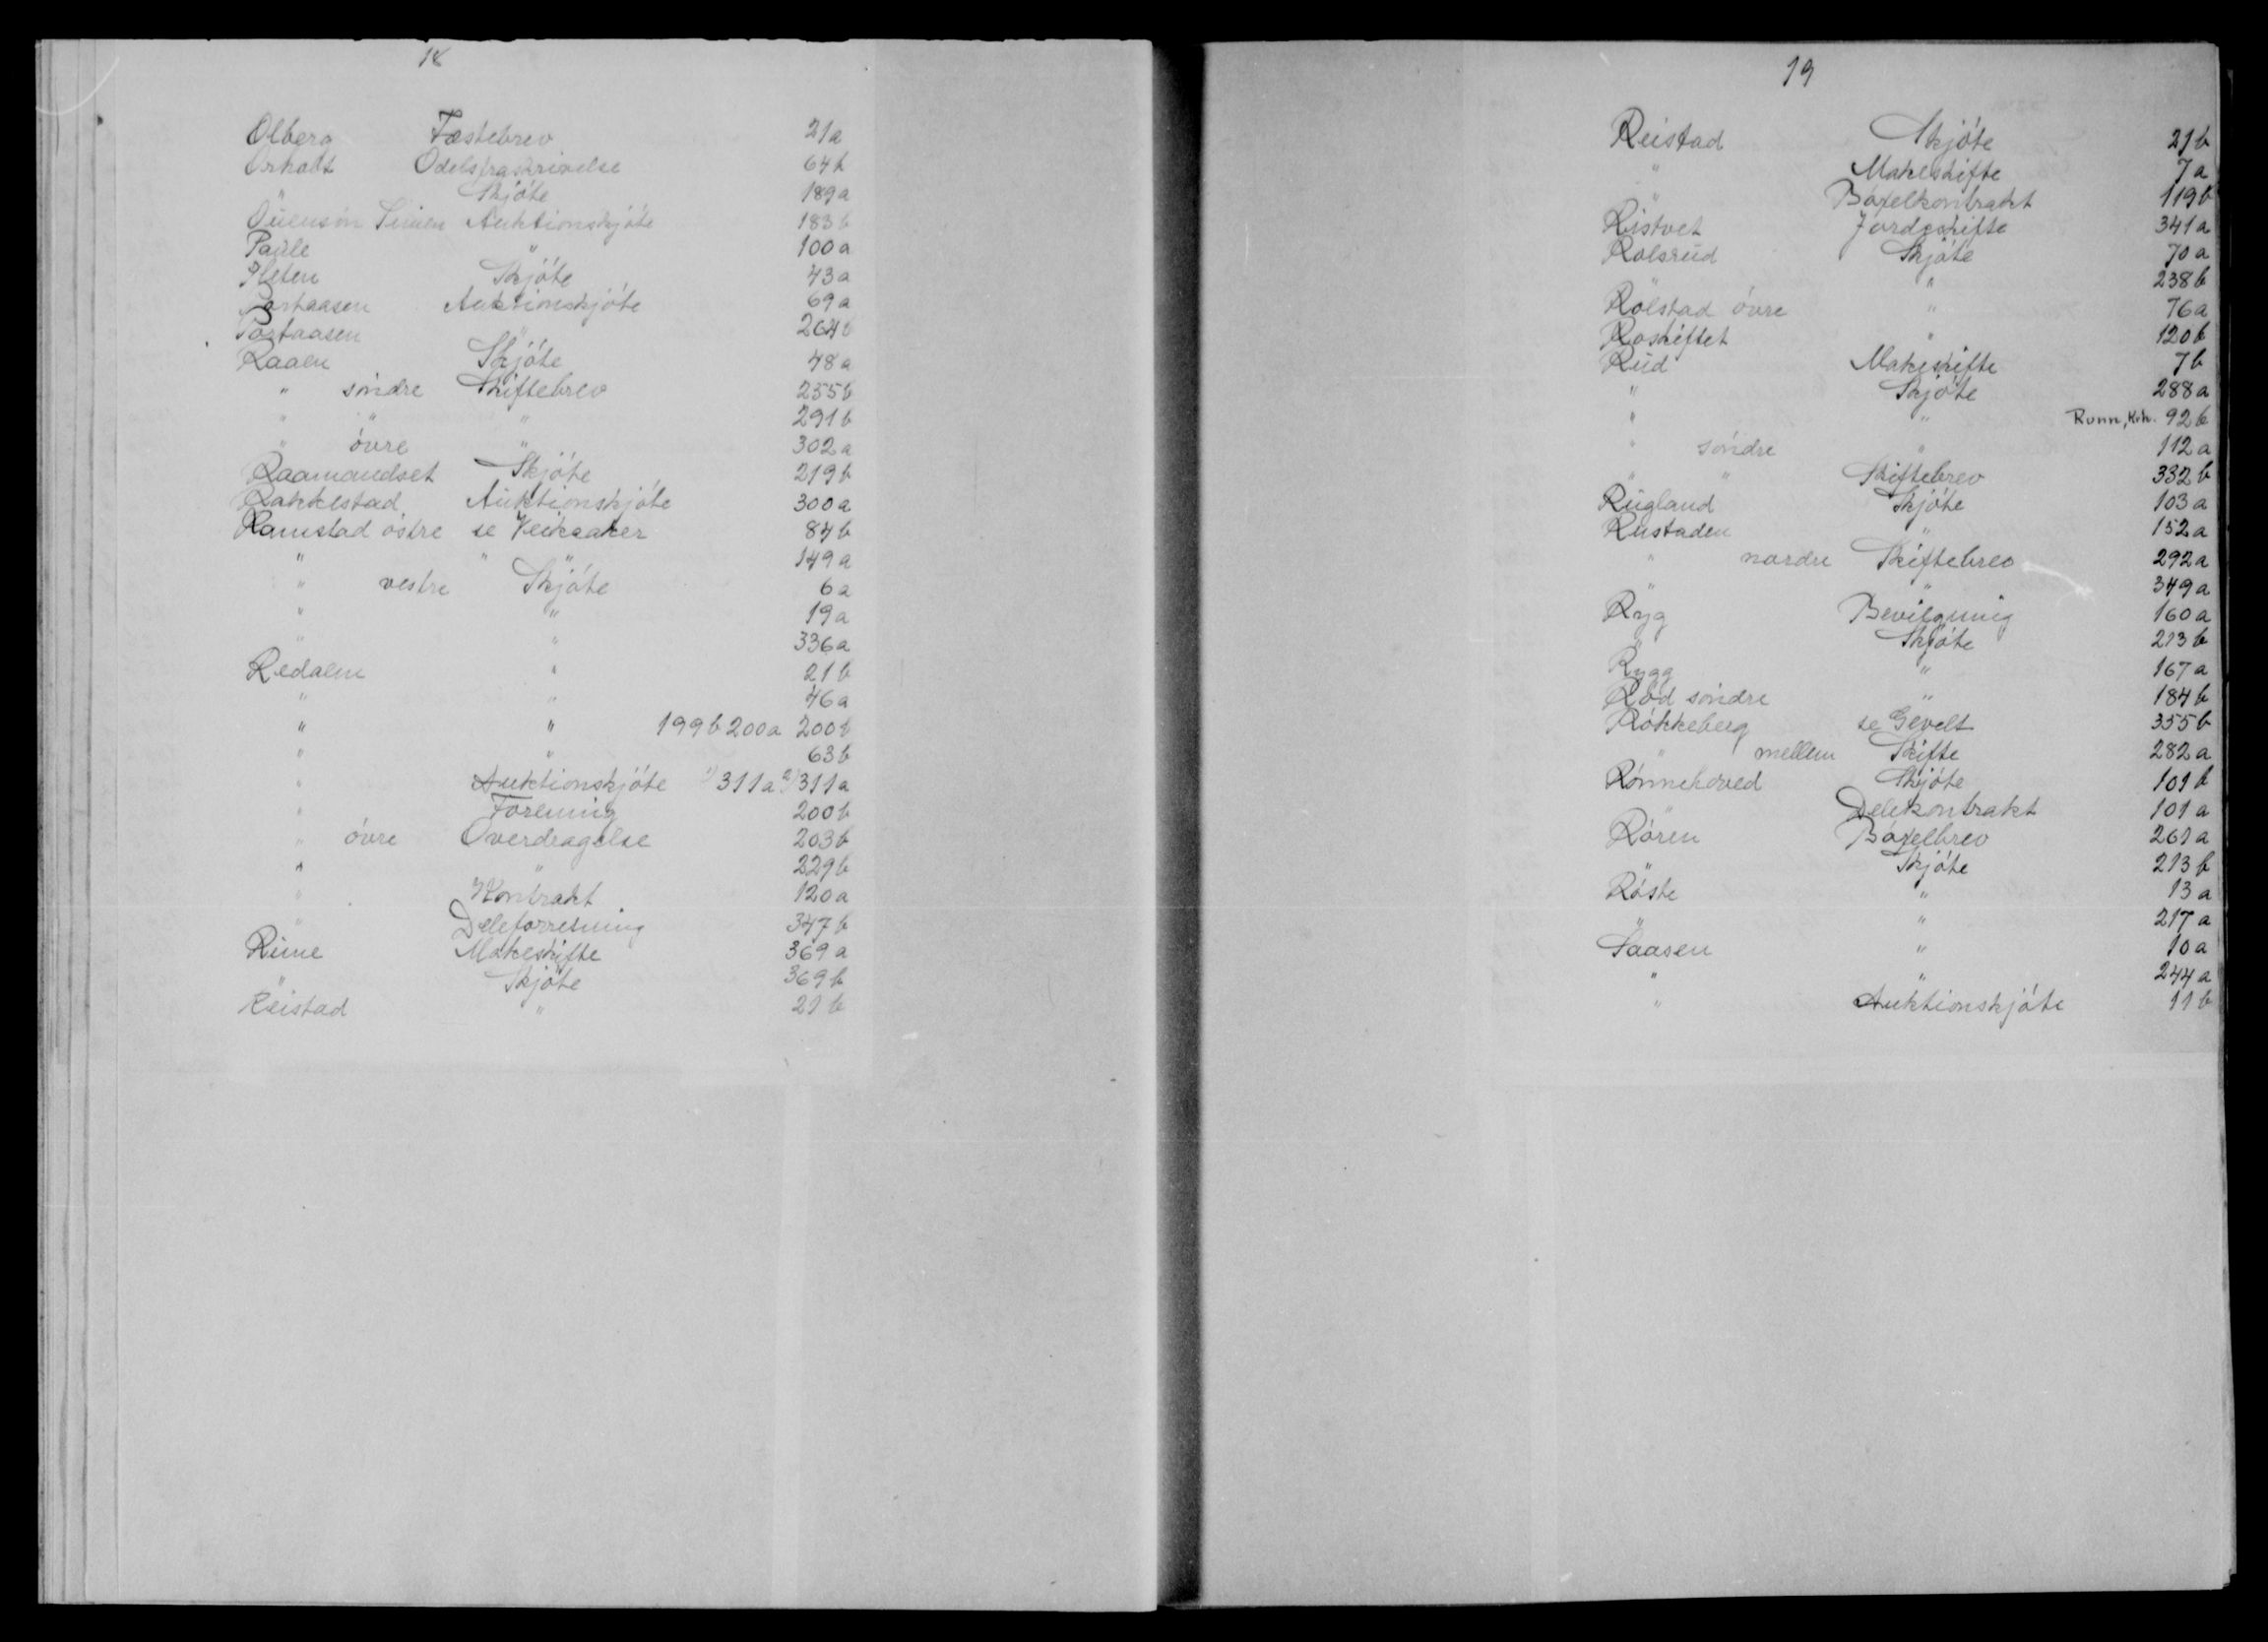 18
Olberg Fæstebrev 21a
Orholt Odelsfraskrivelse 64b
" Skjóte 189a
Auktionskjóte 183b
Paule " 100a
Pleten Skjóte 43a
Portaasen Auktionskjóte 69a
Portaasen " 264b
Raaen Skjóte 48a
" sóndre Skiftebrev 255b
" " " 291b
" óvre " 302a
Raamandset Skjóte 219b
Rakkestad Auktionskjóte 300a
Ramstad óstre se Veiksaker 84b
" " " 149a
" vestre Skjóte 6a
" " 19a
" " 336a
Redalen " 21b
" " 46a
" " 199b 200a 200b
" " 63b
" Auktionskjóte 1) 311a 2) 311a
" Forening 200b
" óvre Overdragelse 203b
" " 229b
" Kontrakt 120a
" Deleforretning 347b
Reine Makeskifte 369a
" Skjóte 369b
Reistad " 21b
19
Reistad Skjóte 21b
" Makeskifte 7a
" Bóxelkontrakt 119b
Ristvet Jordeskifte 341a
Rolsrud Skjóte 70a
" 238b
Rolstad óvre " 76a
Roskiftet " 120b
Rud Makeskifte 7b
" Skjóte 288a
" " Runn, Krh. 92b
" sóndre " 112a
" " Skiftebrev 332b
Rugland Skjóte 103a
Rustaden " 152a
" nordre Skiftebrev 292a
" 349a
Ryg Bevilgning 160a
" Skjóte 213b
Rygg " 167a
Ród sóndre " 184b
Rókkeberg se Gevelt 355b
" mellem Skifte 282a
Rónnehoved Skjóte 101b
" Delekontrakt 101a
Róren Bóxelbrev 261a
" Skjóte 213b
Róste " 13a
" " 217a
Saasen " 10a
" " 244a
" Auktionskjóte 11b